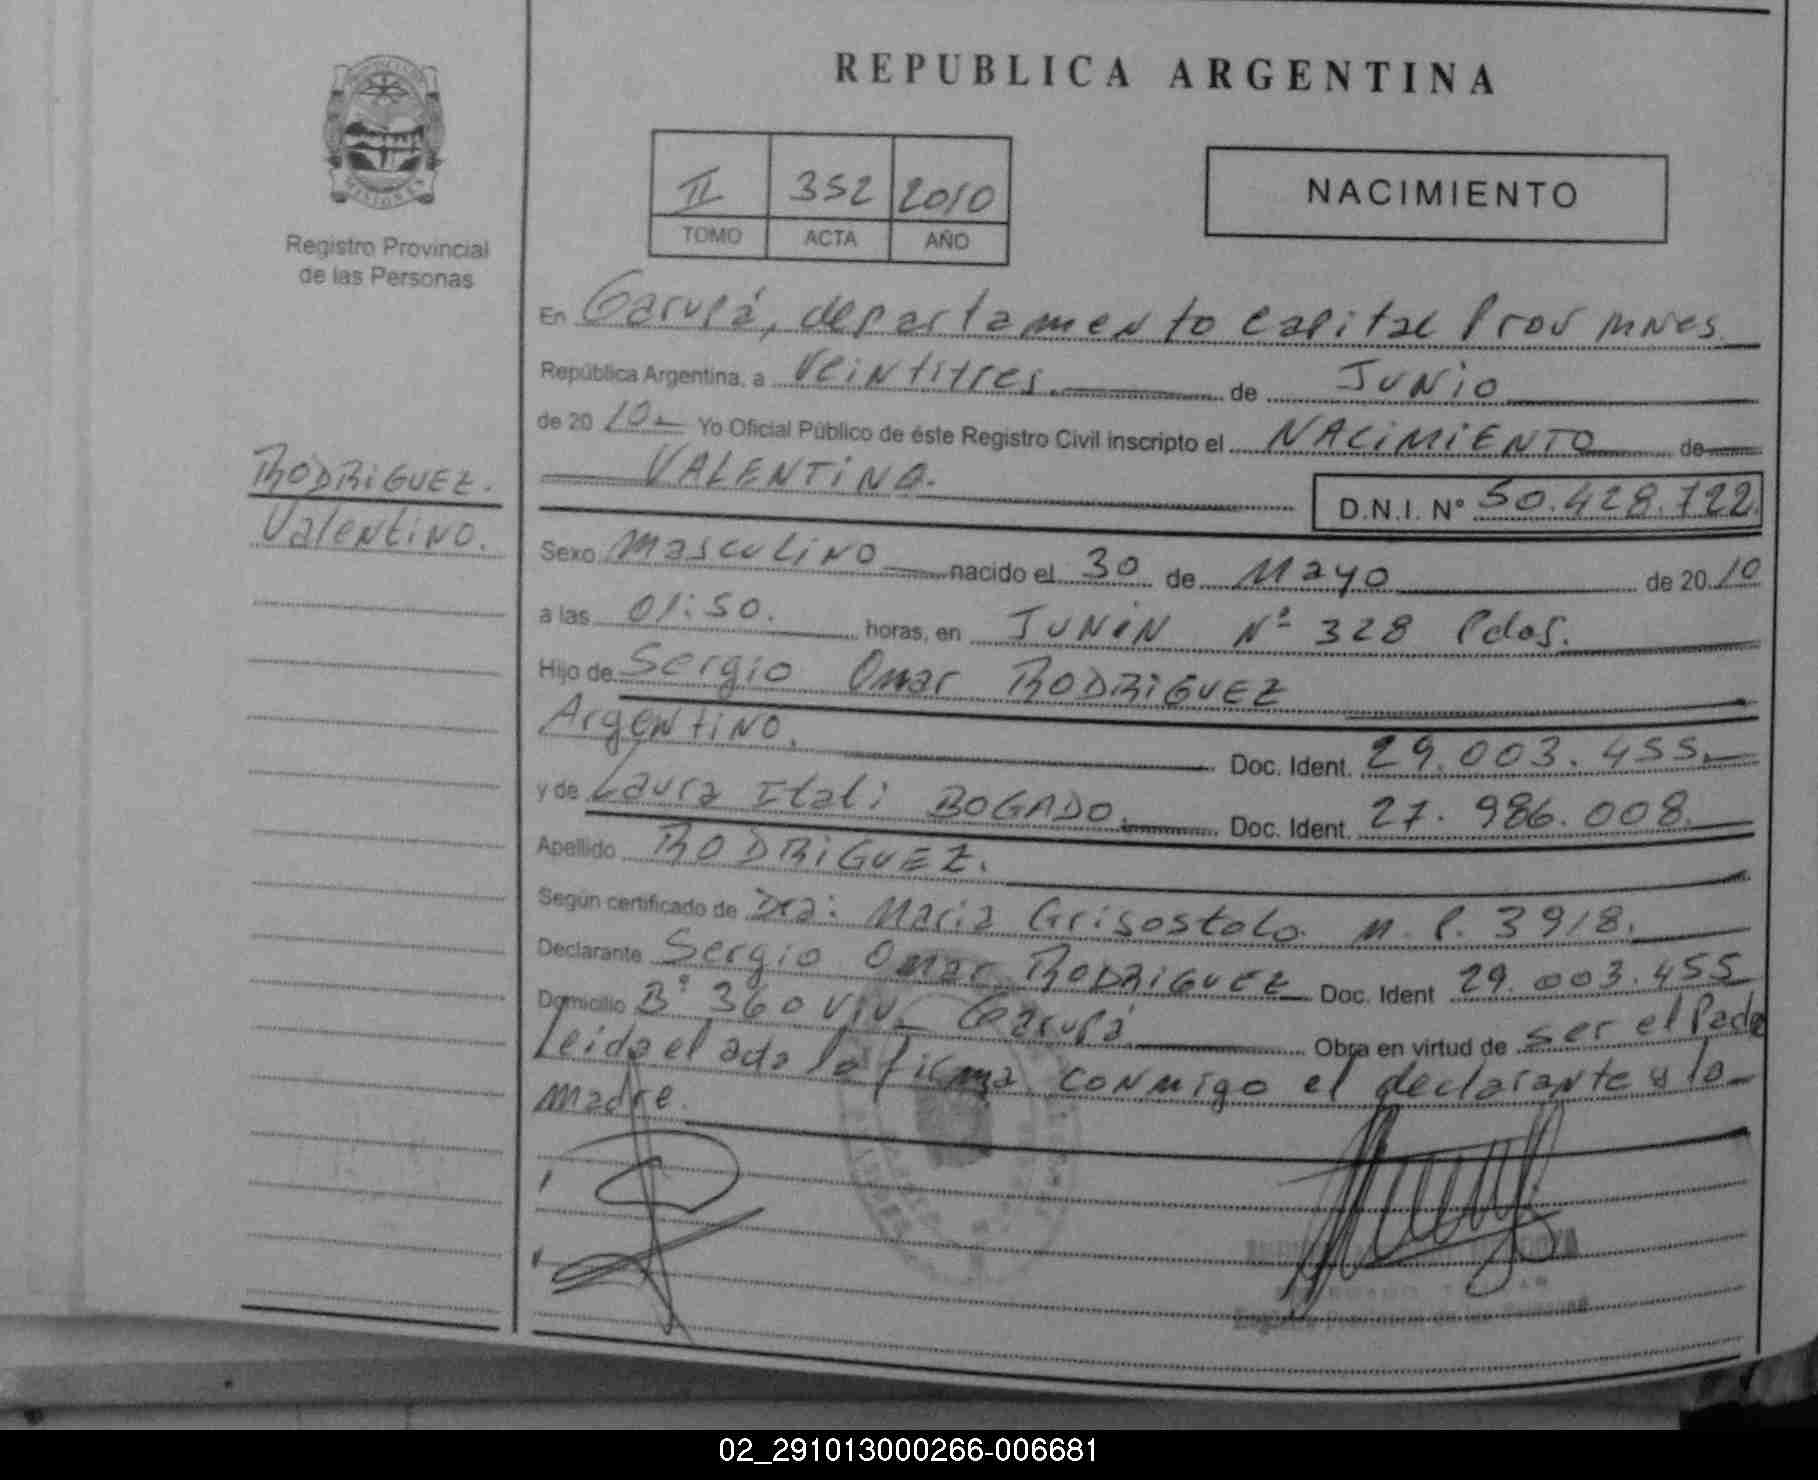 REPUBLICA ARGENTINA
II 352 2010
TOMO ACTA AÑO
NACIMIENTO
MISIONES
Registro Provincial
de las Personas
RODRIGUEZ.
Valentino.
En Garupá, departamento Capital Prov mnes.
República Argentina, a veintitres de Junio
de 2010 Yo Oficial Público de éste Registro Civil inscripto el NACIMIENTO de
VALENTINO.
D.N.I. N° 50.428.722.
Sexo Masculino nacido el 30 de Mayo de 2010
a las 01:50. horas, en JUNIN Nº 328 Pdas.
Hijo de Sergio Omar RODRIGUEZ
Argentino. Doc. Ident. 29.003.455.
y de Laura Itatí BOGADO. Doc. Ident. 27.986.008.
Apellido RODRIGUEZ.
Según certificado de Dra: Maria Grisostolo M.P. 3918.
Declarante Sergio Omar RODRIGUEZ Doc. Ident 29.003.455
Domicilio Bº 360 viv. Garupá Obra en virtud de ser el Padre
Leida el acta la firma conmigo el declarante y la
madre.
02_291013000266-006681